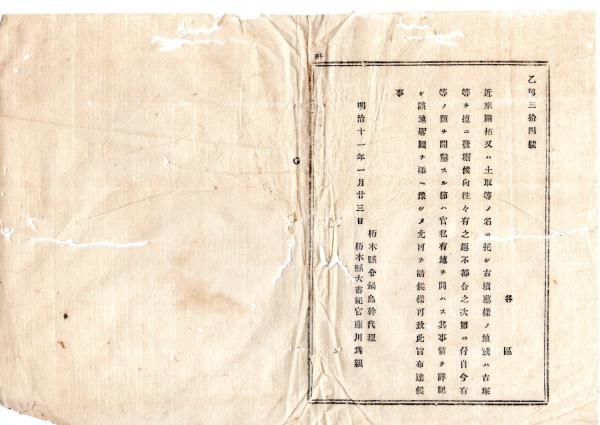 乙第三拾四號
各區
近來開拓又ハ土取等ノ名ニ托シ古墳墓樣ノ地或ハ古塚
等ヲ擅ニ發堀候向往々有之趣不都合之次第ニ付自今右
等ノ類ヲ開鑿スル節ハ官私有地ヲ問ハス其事情ヲ詳記
シ該地畧圖ヲ添ヘ豫シメ允可ヲ請候樣可致此旨布達候
事
明治十一年一月廿三日
栃木縣令鍋島幹代理
栃木縣大書記官藤川爲親